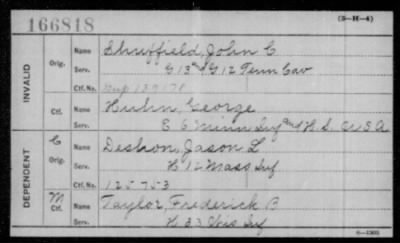 166818 (3-H-4)
INVALID
Orig. Name Shuffield, John C
Serv. G 13 & G 12 Tenn Cav
Ctf. No.
Ctf. Name Huhn, George
Serv. E 6 Minn Inf and H.S. U.S.A
DEPENDENT
C
Orig. Name Deshon, Jason L
Serv. H 12 Mass Inf
Ctf. No. 125753
M
Ctf. Name Taylor, Frederick B
Serv. H 33 Wis Inf